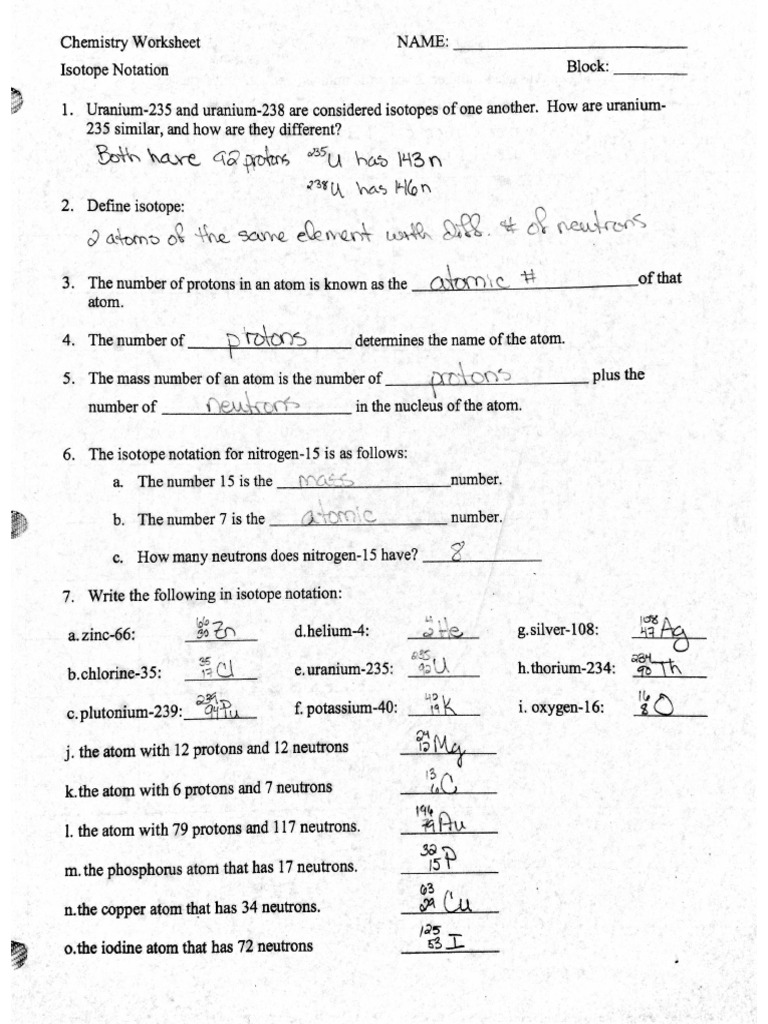 Chemistry Worksheet NAME: ____________
Isotope Notation Block: ________
1. Uranium-235 and uranium-238 are considered isotopes of one another. How are uranium-
235 similar, and how are they different?
Both have 92 protons ²³⁵U has 143 n
²³⁸U has 146 n
2. Define isotope:
2 atoms of the same element with diff. # of neutrons
3. The number of protons in an atom is known as the atomic # of that
atom.
4. The number of protons determines the name of the atom.
5. The mass number of an atom is the number of protons plus the
number of neutrons in the nucleus of the atom.
6. The isotope notation for nitrogen-15 is as follows:
a. The number 15 is the mass number.
b. The number 7 is the atomic number.
c. How many neutrons does nitrogen-15 have? 8
7. Write the following in isotope notation:
a. zinc-66: ⁶⁶₃₀Zn d.helium-4: ⁴₂He g.silver-108: ¹⁰⁸₄₇Ag
b.chlorine-35: ³⁵₁₇Cl e.uranium-235: ²³⁵₉₂U h.thorium-234: ²³⁴₉₀Th
c. plutonium-239: ²³⁹₉₄Pu f. potassium-40: ⁴⁰₁₉K i. oxygen-16: ¹⁶₈O
j. the atom with 12 protons and 12 neutrons ²⁴₁₂Mg
k.the atom with 6 protons and 7 neutrons ¹³₆C
l. the atom with 79 protons and 117 neutrons. ¹⁹⁶₇₉Au
m. the phosphorus atom that has 17 neutrons. ³²₁₅P
n.the copper atom that has 34 neutrons. ⁶³₂₉Cu
o.the iodine atom that has 72 neutrons ¹²⁵₅₃I